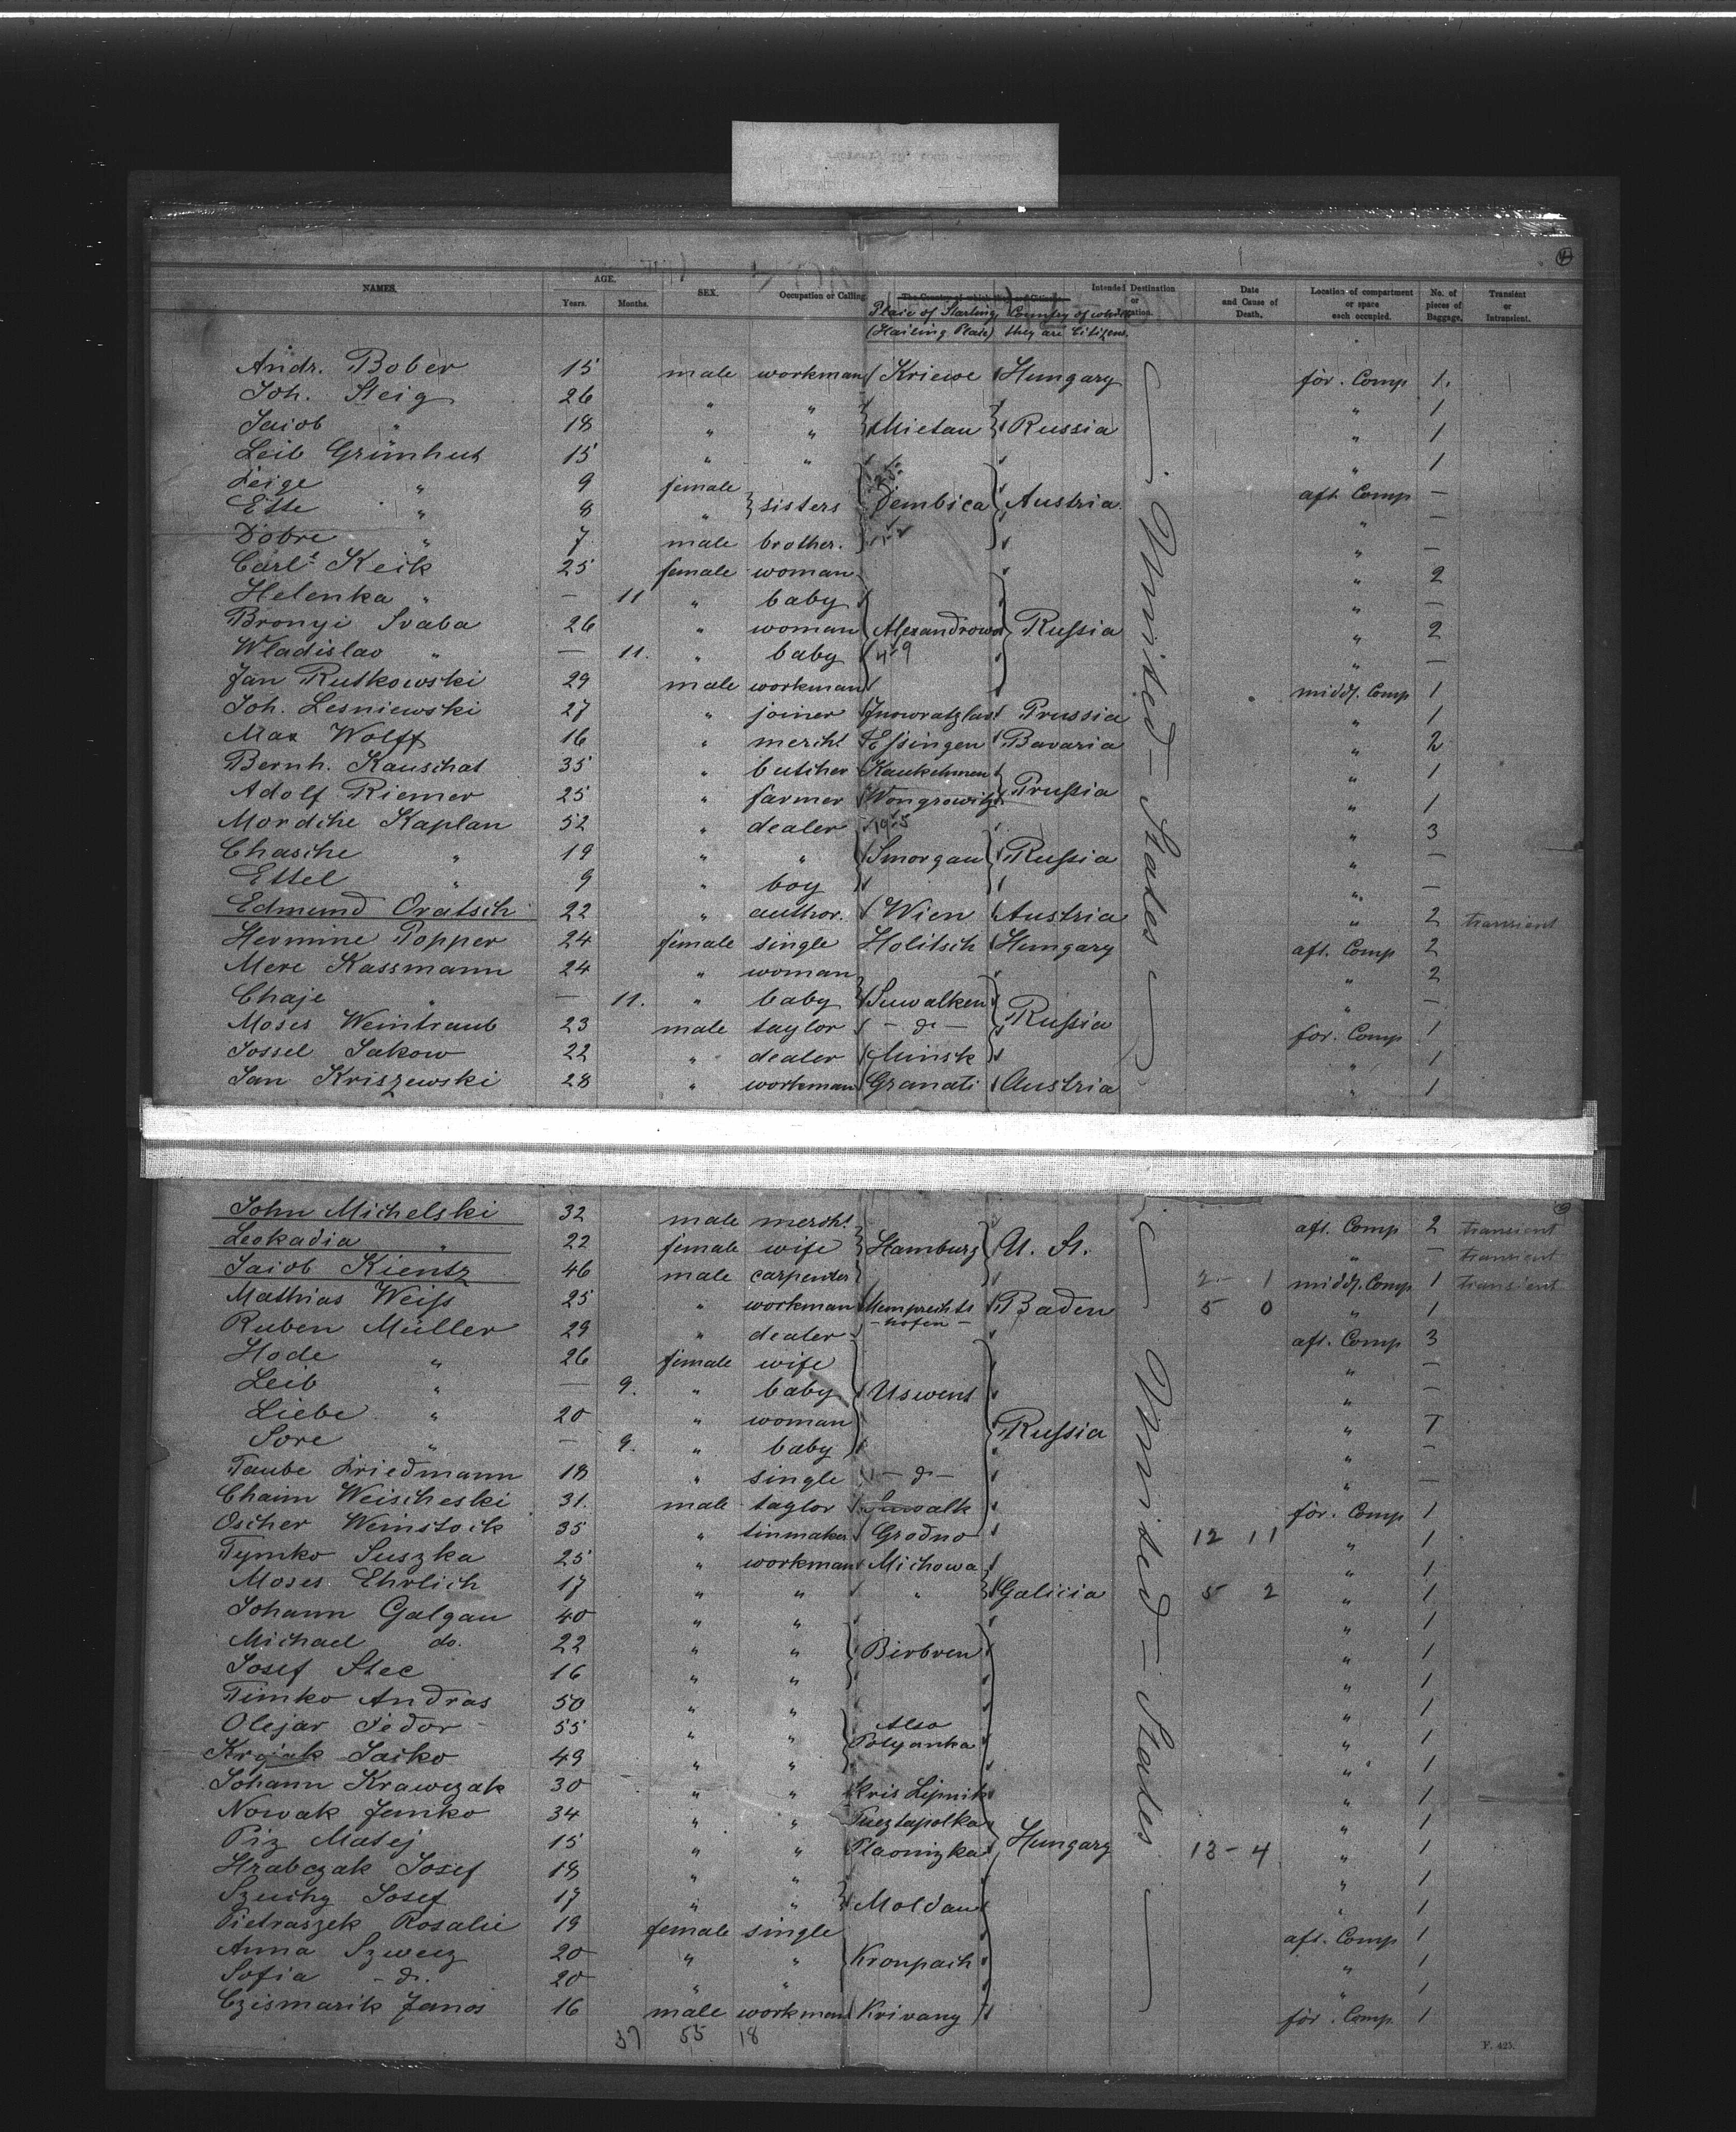 4
NAMES. AGE. Years. Months. SEX. Occupation or Calling. The Country of which they are Citizens. Intended Destination or Location. Date and Cause of Death. Location of compartment or space each occupied. No. of pieces of Baggage. Transient or Intransient.
Place of Starting Country of which
(Hailing Place) they are Citizens.
Andr. Bober 15 male workman Kriewe Hungary för. Comp 1.
Joh. Steig 26 " " " 1
Jacob " 18 " " Mietau Russia " 1
Leib Grünhut 15 " " " 1
Feige " 9 female aft. Comp —
Ette " 8 " sisters Dembica Austria " —
Dobre " 7 male brother. " —
Carl. Keik 25 female woman " 2
Helenka " — 11 " baby " —
Bronyi Svaba 26 " woman Alexandrowo Russia " 2
Wladislav " — 11. " baby " —
Jan Rutkowski 29 male workman middl. Comp 1
Joh. Lesniewski 27 " joiner Inowratzlaw Prussia " 1
Max Wolff 16 " mercht Essingen Bavaria " 2
Bernh. Kauschat 35 " butcher Kaukehmen " 1
Adolf Riemer 25 " farmer Wongrowitz Prussia " 1
Mordche Kaplan 52 " dealer " 3
Chasche " 19 " " Smorgan Russia " —
Ettel " 9 " boy " —
Edmund Oratsch 22 " author. Wien Austria " 2 transient
Hermine Popper 24 female single Holitsch Hungary aft. Comp 2
Mere Kassmann 24 " woman " 2
Chaje " — 11. " baby Suwalken " —
Moses Weintraub 23 male taylor — do — Russia for. Comp 1
Jossel Jakow 22 " dealer Minsk " 1
Jan Kriszewski 28 " workman Granati Austria " 1
United States
John Michelski 32 male mercht aft. Comp 2 transient
Leokadia " 22 female wife Hamburg U. St. " — transient
Jacob Kientz 46 male carpenter 2 - 1 middl. Comp 1 transient
Mathias Weiss 25 " workman Hemprechts Baden 5 0 " 1
- hofen -
Ruben Müller 29 " dealer aft. Comp 3
Hode " 26 female wife " —
Leib " — 9. " baby Uswent " —
Liebe " 20 " woman Russia " 1
Sore " — 9. " baby " —
Taube Friedmann 18 " single — do — " —
Chaim Weischeski 31 male taylor Suwalk för. Comp 1
Oscher Weinstock 35 " tinmaker Grodno 12 11 " 1
Tymko Suszka 25 " workman Michowa " 1
Moses Ehrlich 17 " " " Galicia 5 2 " 1
Johann Galgan 40 " " " 1
Michael do. 22 " " Birbren " 1
Josef Stec 16 " " " 1
Timko Andras 50 " " " 1
Olejar Fedor 55 " " Also " 1
Polyanka
Krajak Jacko 49 " " " 1
Johann Krawczak 30 " " Kris Lipnik " 1
Nowak Janko 34 " " Pusztapolka " 1
Piz Matej 15 " " Plavniczka Hungary 13 - 4 " 1
Hrabczak Josef 18 " " " 1
Szuchy Josef 17 " " Moldau " 1
Pietraszek Rosalie 19 female single aft. Comp 1
Anna Szwecz 20 " " Krompach " 1
Sofia - do. 20 " " " 1
Czismarik Janos 16 male workman Krivany för. Comp 1
United States
37 55 18
F. 425.